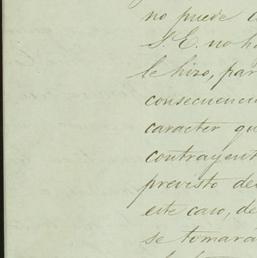 no puede
S. E. no ha
le hizo, par
consecuenci
caracter qu
contrayent
previsto de
este caso, de
se tomará